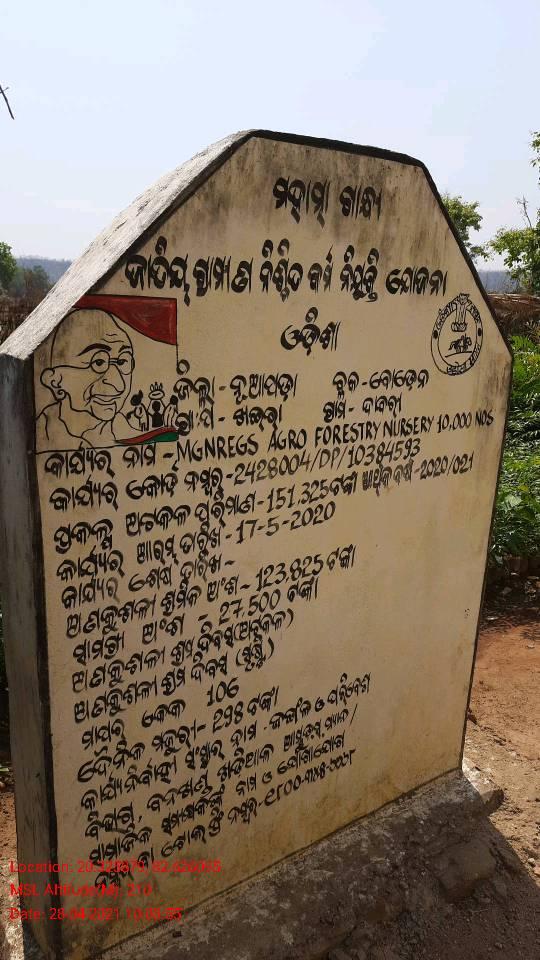 ମହାତ୍ମା ଗାନ୍ଧୀ
ଜାତିୟ ଗ୍ରାମୀଣ ନିଶ୍ଚିତ କର୍ମ ନିଯୁକ୍ତି ଯୋଜନା
ଓଡ଼ିଶା
ଜିଲ୍ଲା - ନୂଆପଡ଼ା ବ୍ଲକ - ବୋଡ଼େନ
ଗ୍ରା.ପ - ଖଇରା ଗ୍ରାମ - ଦାବରୀ
କାର୍ଯ୍ୟର ନାମ - MGNREGS AGRO FORESTRY NURSERY 10,000 NOS
କାର୍ଯ୍ୟର କୋଡ଼ି ନମ୍ବର - 2428004/DP/10384593
ପ୍ରକଳ୍ପ ଅଟକଳ ପରିମାଣ - 151,325 ଟଙ୍କା ଆର୍ଥିକ ବର୍ଷ - 2020/021
କାର୍ଯ୍ୟର ଆରମ୍ଭ ତାରିଖ - 17-5-2020
କାର୍ଯ୍ୟର ଶେଷ ତାରିଖ -
ଅଣକୁଶଳୀ ଶ୍ରମିକ ଅଂଶ - 123,825 ଟଙ୍କା
ସାମଗ୍ରୀ ଅଂଶ - 27,500 ଟଙ୍କା
ଅଣକୁଶଳୀ ଶ୍ରମ ଦିବସ (ଅଟକଳ)
ଅଣକୁଶଳୀ ଶ୍ରମ ଦିବସ (ସୃଷ୍ଟି)
ମାପର କେକ 106
ଦୈନିକ ମଜୁରୀ - 298 ଟଙ୍କା
କାର୍ଯ୍ୟନିର୍ବାହୀ ସଂସ୍ଥାର ନାମ - ଜଙ୍ଗଲ ଓ ପରିବେଶ
ବିଭାଗ, ବନଖଣ୍ଡ ଖଡ଼ିଆଳ
ସାମାଜିକ ନାମ ଓ ଯୋଗାଯୋଗ
ନମ୍ବର -
Location: 20.328679, 82.626065
MSL Altitude(M): 210
Date: 28-04-2021 10:00:05